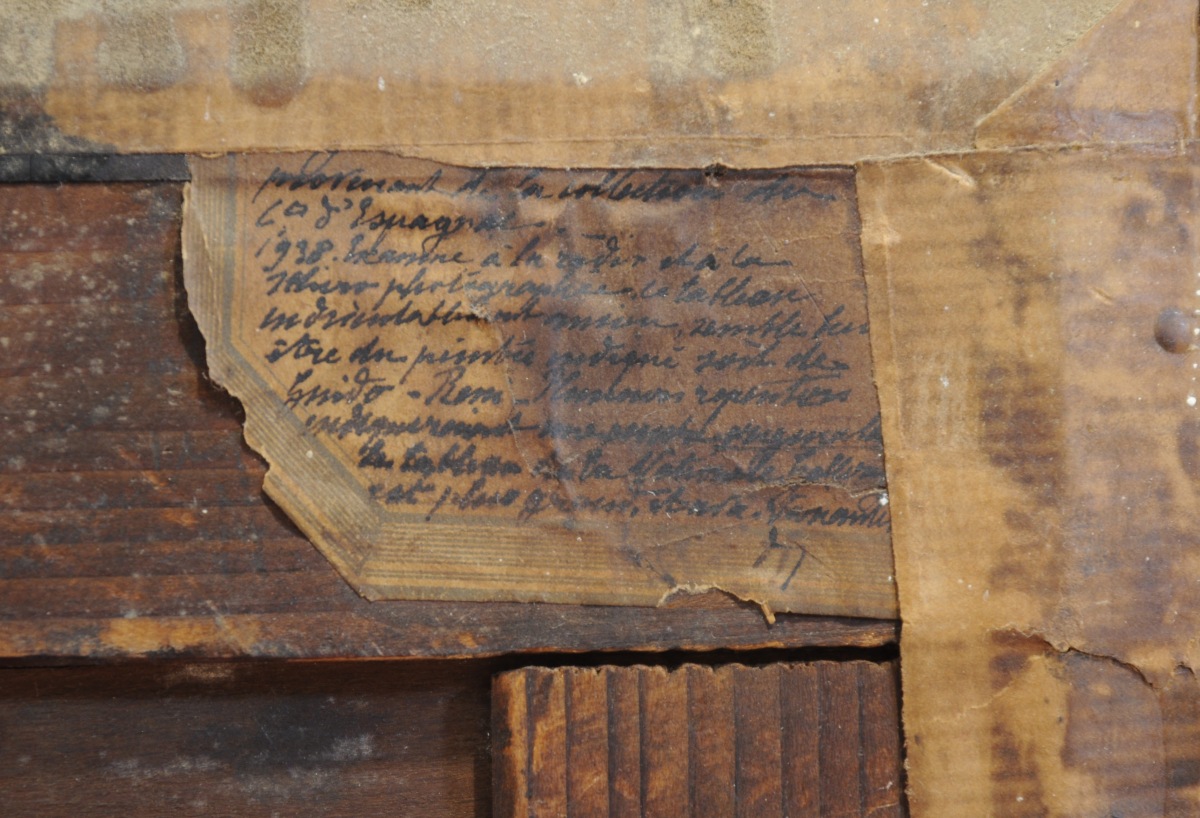 provenant de la collection du
C.te d'Espagnac.
1938. Examiné à la radio et à la
Micro photographie. le tableau
indiscutablement ancien, semble bien
être du peintre indiqué soit de
Guido - Reni - Plusieurs repentirs
indiqueraient une pensée originale
Le tableau de la National Gallery
est plus grand,